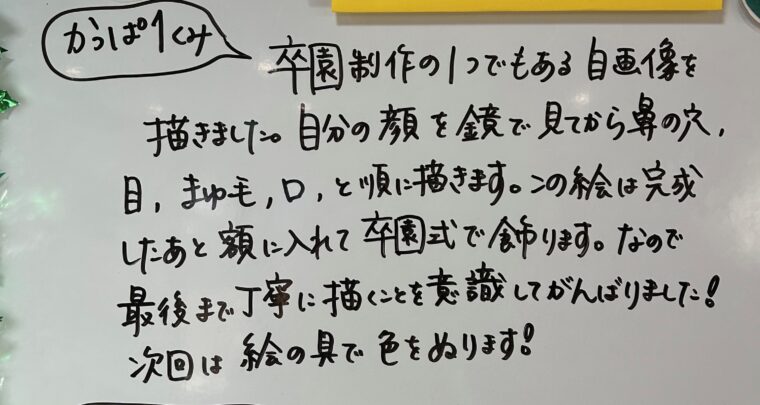 かっぱ1くみ
卒園制作の1つでもある自画像を
描きました。自分の顔を鏡で見てから鼻の穴,
目,まゆ毛,口,と順に描きます。この絵は完成
したあと額に入れて卒園式で飾ります。なので
最後まで丁寧に描くことを意識してがんばりました!
次回は絵の具で色をぬります!